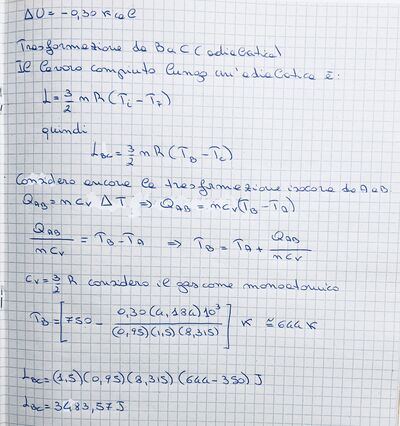 ΔU = -0,30 Kcal
Trasformazione da B a C (adiabatica)
Il lavoro compiuto lungo un'adiabatica è:
L = 3/2 n R (Ti - Tf)
quindi
LBC = 3/2 n R (TB - TC)
Considero ancora la trasformazione isocora da A a B
QAB = n cv ΔT ⇒ QAB = n cv (TB - TA)
QAB / n cv = TB - TA ⇒ TB = TA + QAB / n cv
cv = 3/2 R considero il gas come monoatomico
TB = [750 - 0,30 (4,184) 10³ / (0,95) (1,5) (8,315)] K ≅ 644 K
LBC = (1,5) (0,95) (8,315) (644 - 350) J
LBC = 3483,57 J